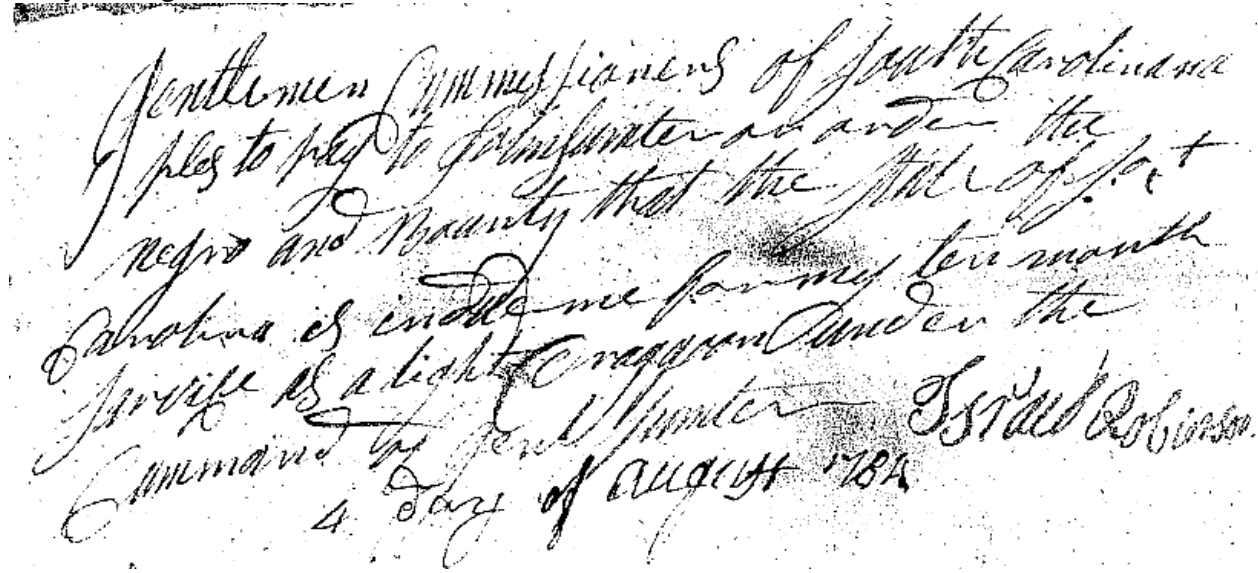 Gentlemen Commissioners of South Carolinana
ples to pay to John Sumter on order the
negro and Bounty that the State of S.
Carolina is indde me for my ten month
Service as a light Dragoon under the
Command of Genl Sumter Israel Robinson
4 day of August 1784